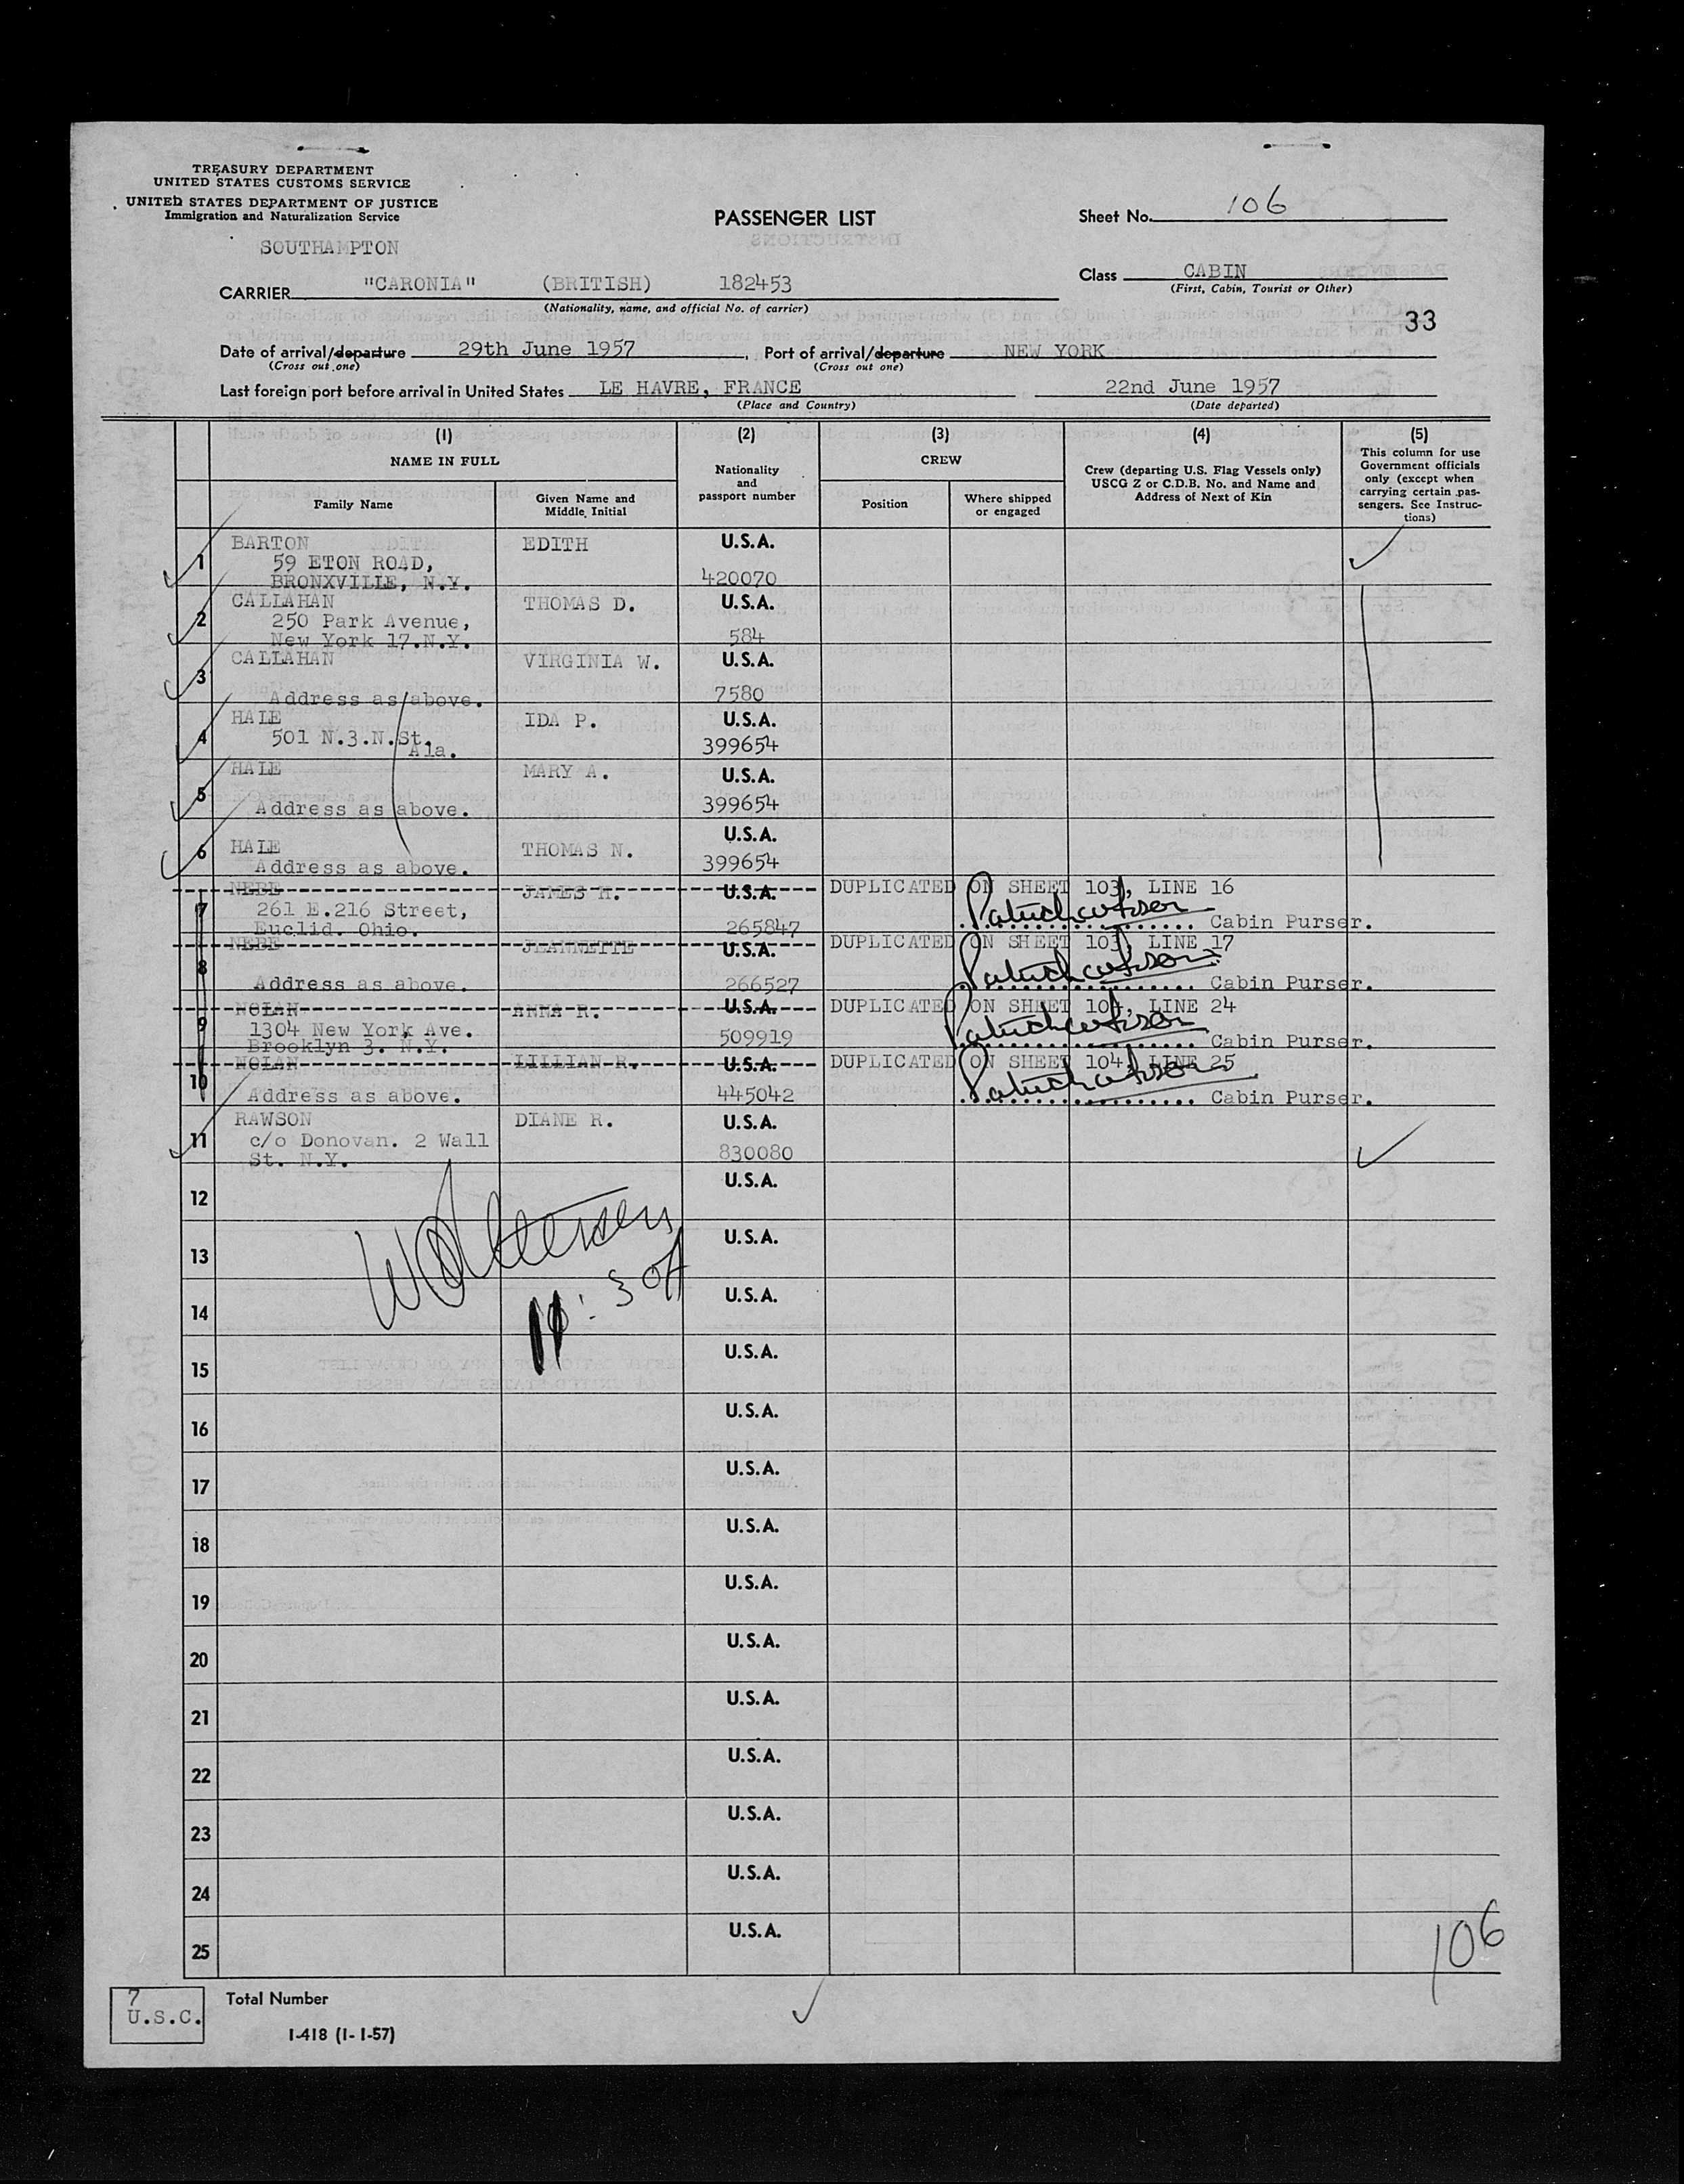 TREASURY DEPARTMENT
UNITED STATES CUSTOMS SERVICE
UNITED STATES DEPARTMENT OF JUSTICE
Immigration and Naturalization Service
PASSENGER LIST
Sheet No. 106
SOUTHAMPTON
CARRIER "CARONIA" (BRITISH) 182453
(Nationality, name, and official No. of carrier)
Class CABIN
(First, Cabin, Tourist or Other)
33
Date of arrival/departure 29th June 1957, Port of arrival/departure NEW YORK
(Cross out one) (Cross out one)
Last foreign port before arrival in United States LE HAVRE, FRANCE 22nd June 1957
(Place and Country) (Date departed)
(1) (2) (3) (4) (5)
NAME IN FULL
Family Name
Given Name and Middle Initial
Nationality and passport number
CREW
Position
Where shipped or engaged
Crew (departing U.S. Flag Vessels only) USCG Z or C.D.B. No. and Name and Address of Next of Kin
This column for use Government officials only (except when carrying certain pas-sengers. See Instruc-tions)
1 BARTON EDITH U.S.A.
59 ETON ROAD,
BRONXVILLE, N.Y. 420070
2 CALLAHAN THOMAS D. U.S.A.
250 Park Avenue,
New York 17.N.Y. 584
3 CALLAHAN VIRGINIA W. U.S.A.
Address as above. 7580
4 HALE IDA P. U.S.A.
501 N.3.N.St. 399654
Ala.
5 HALE MARY A. U.S.A.
Address as above. 399654
6 HALE THOMAS N. U.S.A.
Address as above. 399654
7 NEBE JAMES H. U.S.A. DUPLICATED ON SHEET 103, LINE 16
261 E.216 Street,
Euclid. Ohio. 265847 Cabin Purser.
8 NEBE JEANNETTE U.S.A. DUPLICATED ON SHEET 103, LINE 17
Address as above. 266527 Cabin Purser.
9 NOLAN ANNA R. U.S.A. DUPLICATED ON SHEET 104, LINE 24
1304 New York Ave.
Brooklyn 3. N.Y. 509919 Cabin Purser.
10 NOLAN LILLIAN R. U.S.A. DUPLICATED ON SHEET 104, LINE 25
Address as above. 445042 Cabin Purser.
11 RAWSON DIANE R. U.S.A.
c/o Donovan. 2 Wall
St. N.Y. 830080
12 U.S.A.
13 U.S.A.
14 U.S.A.
15 U.S.A.
16 U.S.A.
17 U.S.A.
18 U.S.A.
19 U.S.A.
20 U.S.A.
21 U.S.A.
22 U.S.A.
23 U.S.A.
24 U.S.A.
25 U.S.A.
106
7
U.S.C.
Total Number
I-418 (1-1-57)